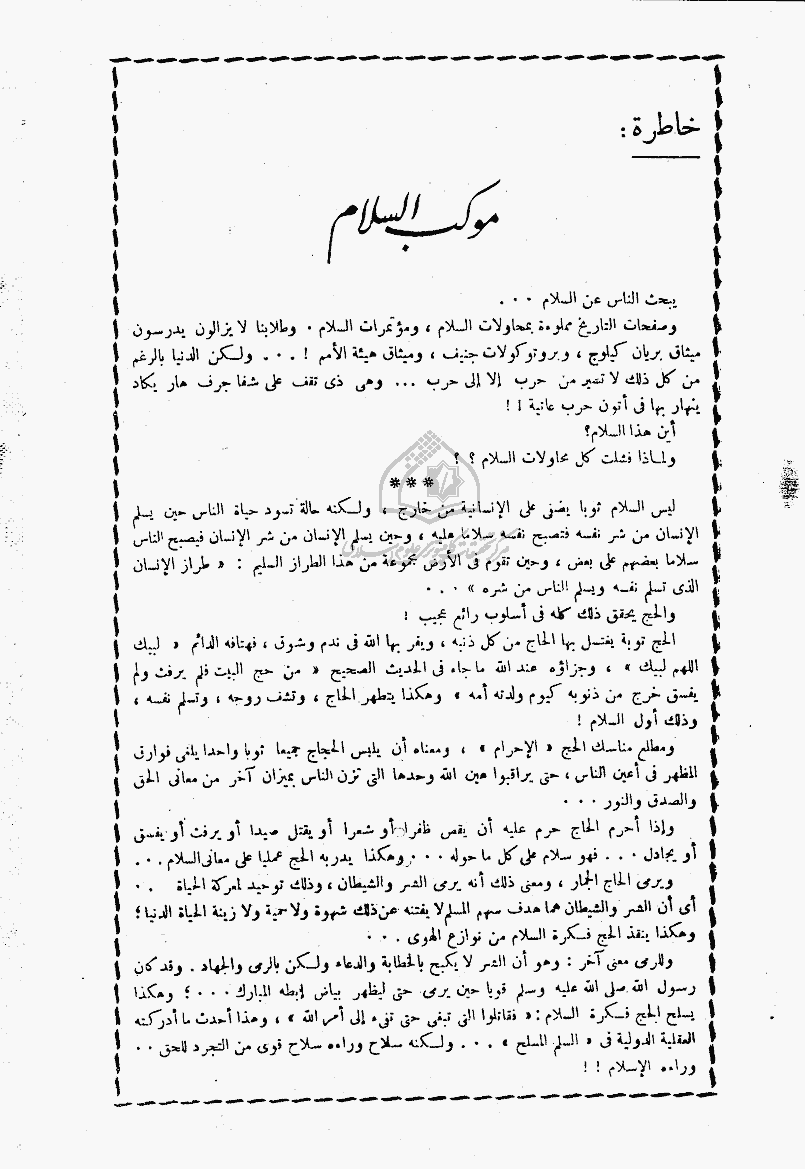 خاطرة :
موكب السلام
يبحث الناس عن السلام . . .
وصفحات التاريخ مملوءة بمحاولات السلام ، ومؤتمرات السلام . وطلابنا لا يزالون يدرسون
ميثاق بريان كيلوج ، وبروتوكولات جنيف ، وميثاق هيئة الأمم ! . . . ولكن الدنيا بالرغم
من كل ذلك لا تسير من حرب إلا إلى حرب ... وهى ذى تقف على شفا جرف هار يكاد
ينهار بها فى أتون حرب عاتية ! !
أين هذا السلام؟
ولماذا فشلت كل محاولات السلام ؟ ؟
* * *
ليس السلام ثوبا يضفى على الإنسانية من خارج ، ولكنه حالة تسود حياة الناس حين يسلم
الإنسان من شر نفسه فتصبح نفسه سلاما عليه ، وحين يسلم الإنسان من شر الإنسان فيصبح الناس
سلاما بعضهم على بعض ، وحين تقوم فى الأرض مجموعة من هذا الطراز السليم : « طراز الإنسان
الذى تسلم نفسه ويسلم الناس من شره » . . .
والحج يحقق ذلك كله فى أسلوب رائع عجيب !
الحج توبة يغتسل بها الحاج من كل ذنبه ، ويفر بها الله فى ندم وشوق ، فهتافه الدائم « لبيك
اللهم لبيك » ، وجزاؤه عند الله ما جاء فى الحديث الصحيح « من حج البيت فلم يرفث ولم
يفسق خرج من ذنوبه كيوم ولدته أمه » وهكذا يتطهر الحاج ، وتشف روحه ، وتسلم نفسه ،
وذلك أول السلام !
ومطلع مناسك الحج « الإحرام » ، ومعناه أن يلبس الحجاج جميعا ثوبا واحدا يلغى فوارق
المظهر فى أعين الناس ، حتى يراقبوا عين الله وحدها التى تزن الناس بميزان آخر من معانى الحق
والصدق والنور . . .
وإذا أحرم الحاج حرم عليه أن يقص ظفرا أو شعرا أو يقتل صيدا أو يرفث أو يفسق
أو يجادل . . . فهو سلام على كل ما حوله . . . وهكذا يدربه الحج عمليا على معانى السلام . . .
ويرمى الحاج الجمار ، ومعنى ذلك أنه يرمى الشر والشيطان ، وذلك توحيد لمعركة الحياة . .
أى أن الشر والشيطان هما هدف سهم المسلم لا يفتنه عن ذلك شهوة ولا حمية ولا زينة الحياة الدنيا ؛
وهكذا ينقذ الحج فكرة السلام من نوازع الهوى . . .
وللرمى معنى آخر : وهو أن الشر لا يكبح بالخطابة والدعاء ولكن بالرمى والجهاد . وقد كان
رسول الله صلى الله عليه وسلم قويا حين يرمى حتى ليظهر بياض إبطه المبارك . . . ؛ وهكذا
يسلح الحج فكرة السلام : « فقاتلوا التى تبغى حتى تفىء إلى أمر الله » ، وهذا أحدث ما أدركته
العقلية الدولية فى « السلم المسلح » . . . ولكنه سلاح وراءه سلاح قوى من التجرد للحق . .
وراءه الإسلام ! !